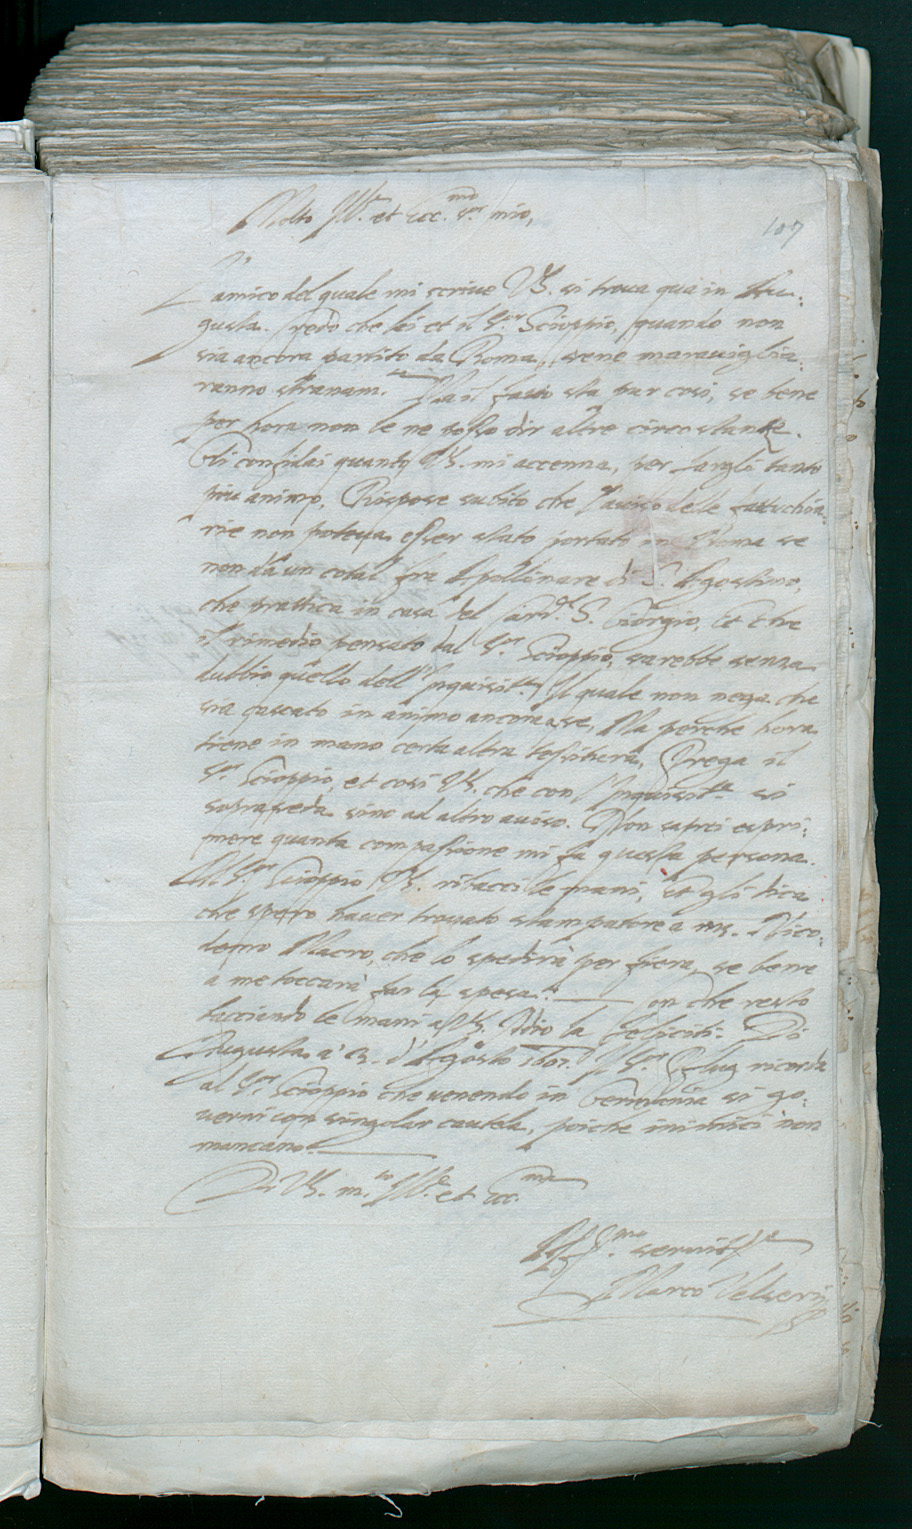 Molto Ill.e et Ecc.mo S.or mio,
107
L'amico del quale mi scrive VS. si trova qua in Au-
gusta. Credo che lei et il S.or Scioppio, quando non
sia ancora partito da Roma, sene maraviglia-
ranno stranam.te Ma il fatto sta pur così, se bene
per hora non le ne posso dir altre circostanze.
Gli confidai quanto VS. mi accenna, per fargli tanto
più animo. Rispose subito che l'aviso delle fattuchia-
rie non poteva esser stato portato in Roma se
non da un cotal fra Apollinare di S. Agostino,
che prattica in casa del Card.l S. Giorgio, et che
il rimedio pensato dal S.or Scioppio, sarebbe senza
dubbio quello dell'Inquisit.ne Il quale non nega che
sia cascato in animo ancora a se, Ma perche hora
tiene in mano certa altra Prega il
S.or Scioppio, et così VS. che con l'Inquisit.ne si
soprasseda sino ad altro aviso. Non saprei espri-
mere quanta compassione mi fa questa persona.
Al S.or Scioppio VS. ribacci le mani, et gli dica
che spero haver trovato stampatore a ms. Nico-
demo Macro, che lo spedirà per fiera, se bene
a me toccarà far la spesa. Con che resto
bacciando le mani a VS. Idio la feliciti. Di
Augusta a 3. d'Agosto 1607. Il S.or ricorda
al S.or Scioppio che venendo in Germania si go-
verni con singolar cautela, poiche inimici non
mancano.
Di VS. m.to Ill.e et Ecc.ma
Aff.mo servit.re
Marco Velseri